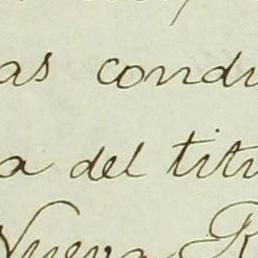 as condu
a del titu
Nueva R